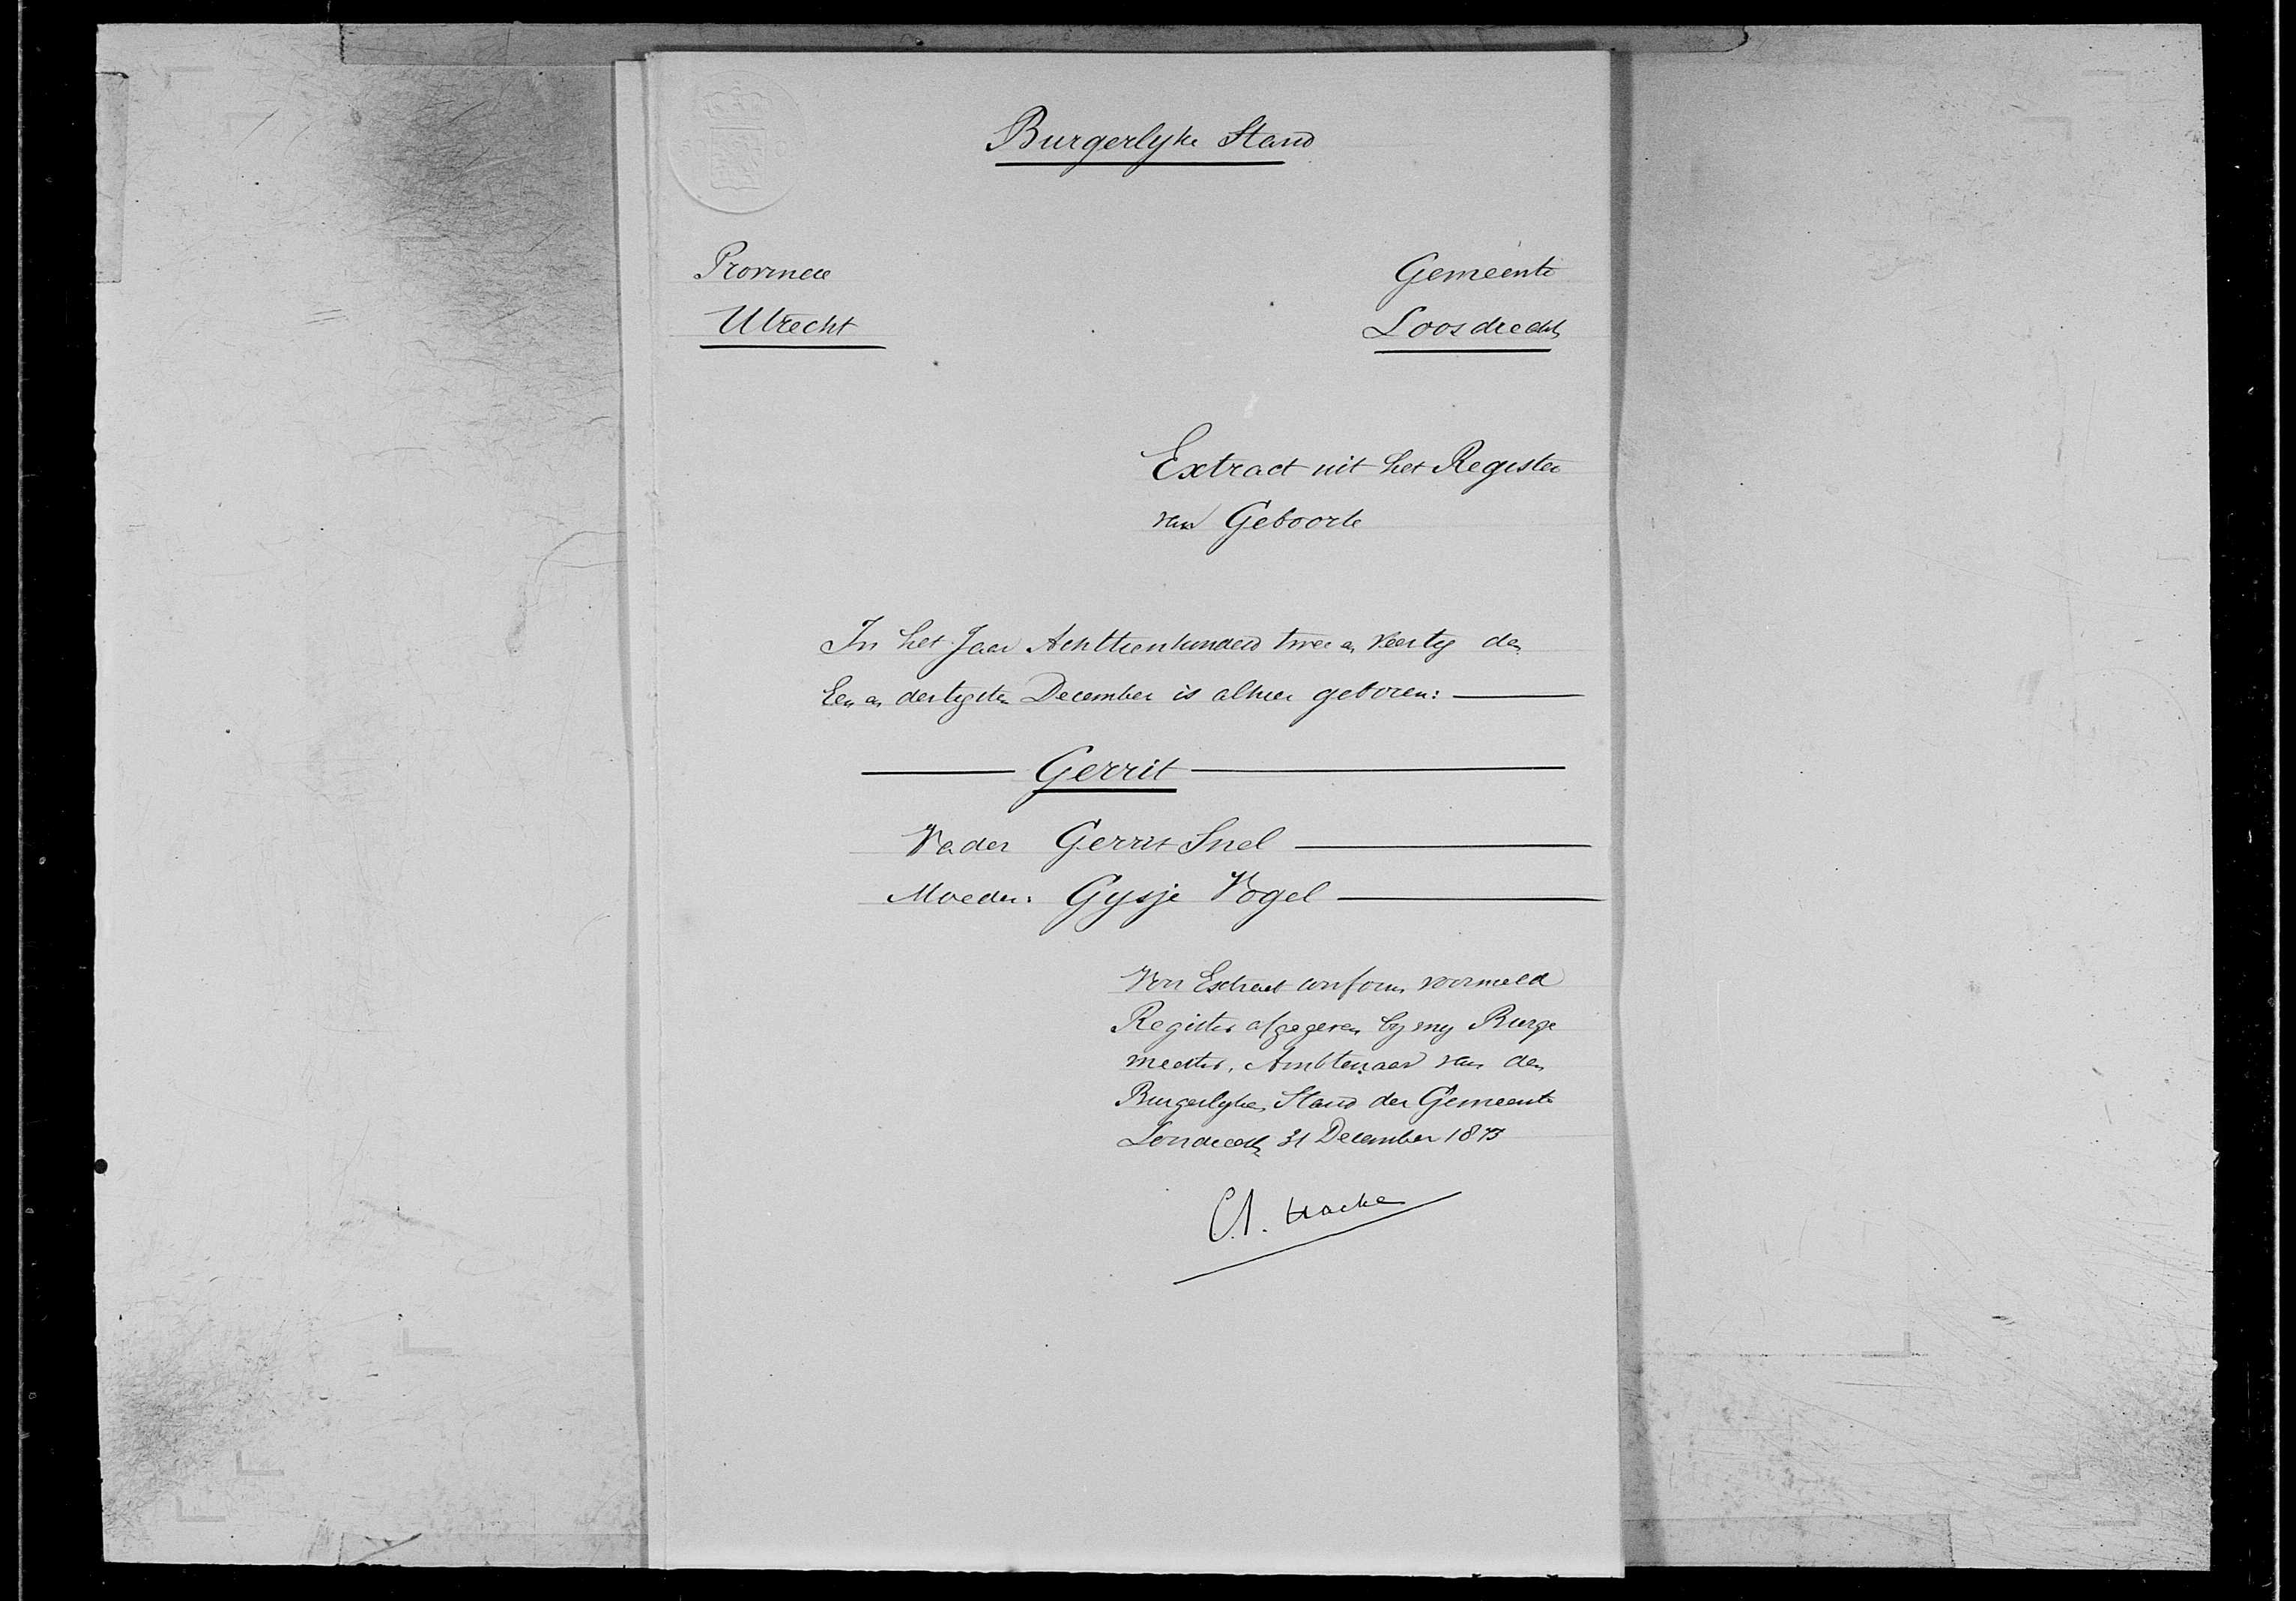 Burgerlyke Stand
Provincie
Utrecht
Gemeente
Loosdrecht
Extract uit het Register
van Geboorte
In het Jaar Achttienhonderd twee en Veertig den
Een en dertigsten December is alhier geboren:
Gerrit
Vader Gerrit Snel
Moeder: Gysje Vogel
Voor Extract conform voormeld
Register afgegeven by my Burge
meester, Ambtenaar van den
Burgerlyken Stand der Gemeente
Loosdrecht 31 December 1873